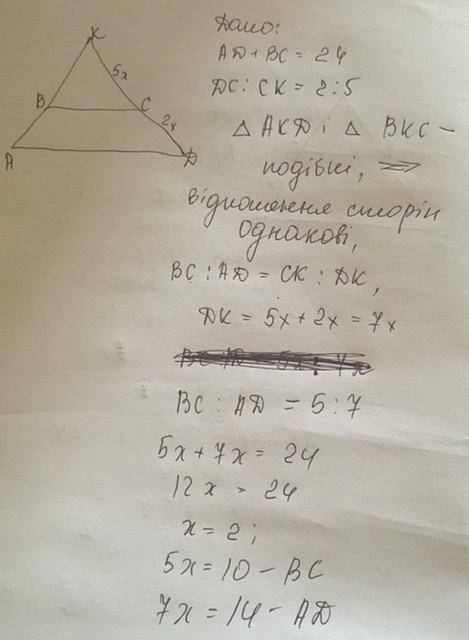 K
5x
B
C
2x
A
D
Дано:
AD + BC = 24
DC : CK = 2:5
△ AKD і △ BKC –
подібні, ⟹
відношення сторін
однакові,
BC : AD = CK : DK,
DK = 5x + 2x = 7x
BC : AD = 5 : 7
5x + 7x = 24
12x = 24
x = 2;
5x = 10 – BC
7x = 14 – AD